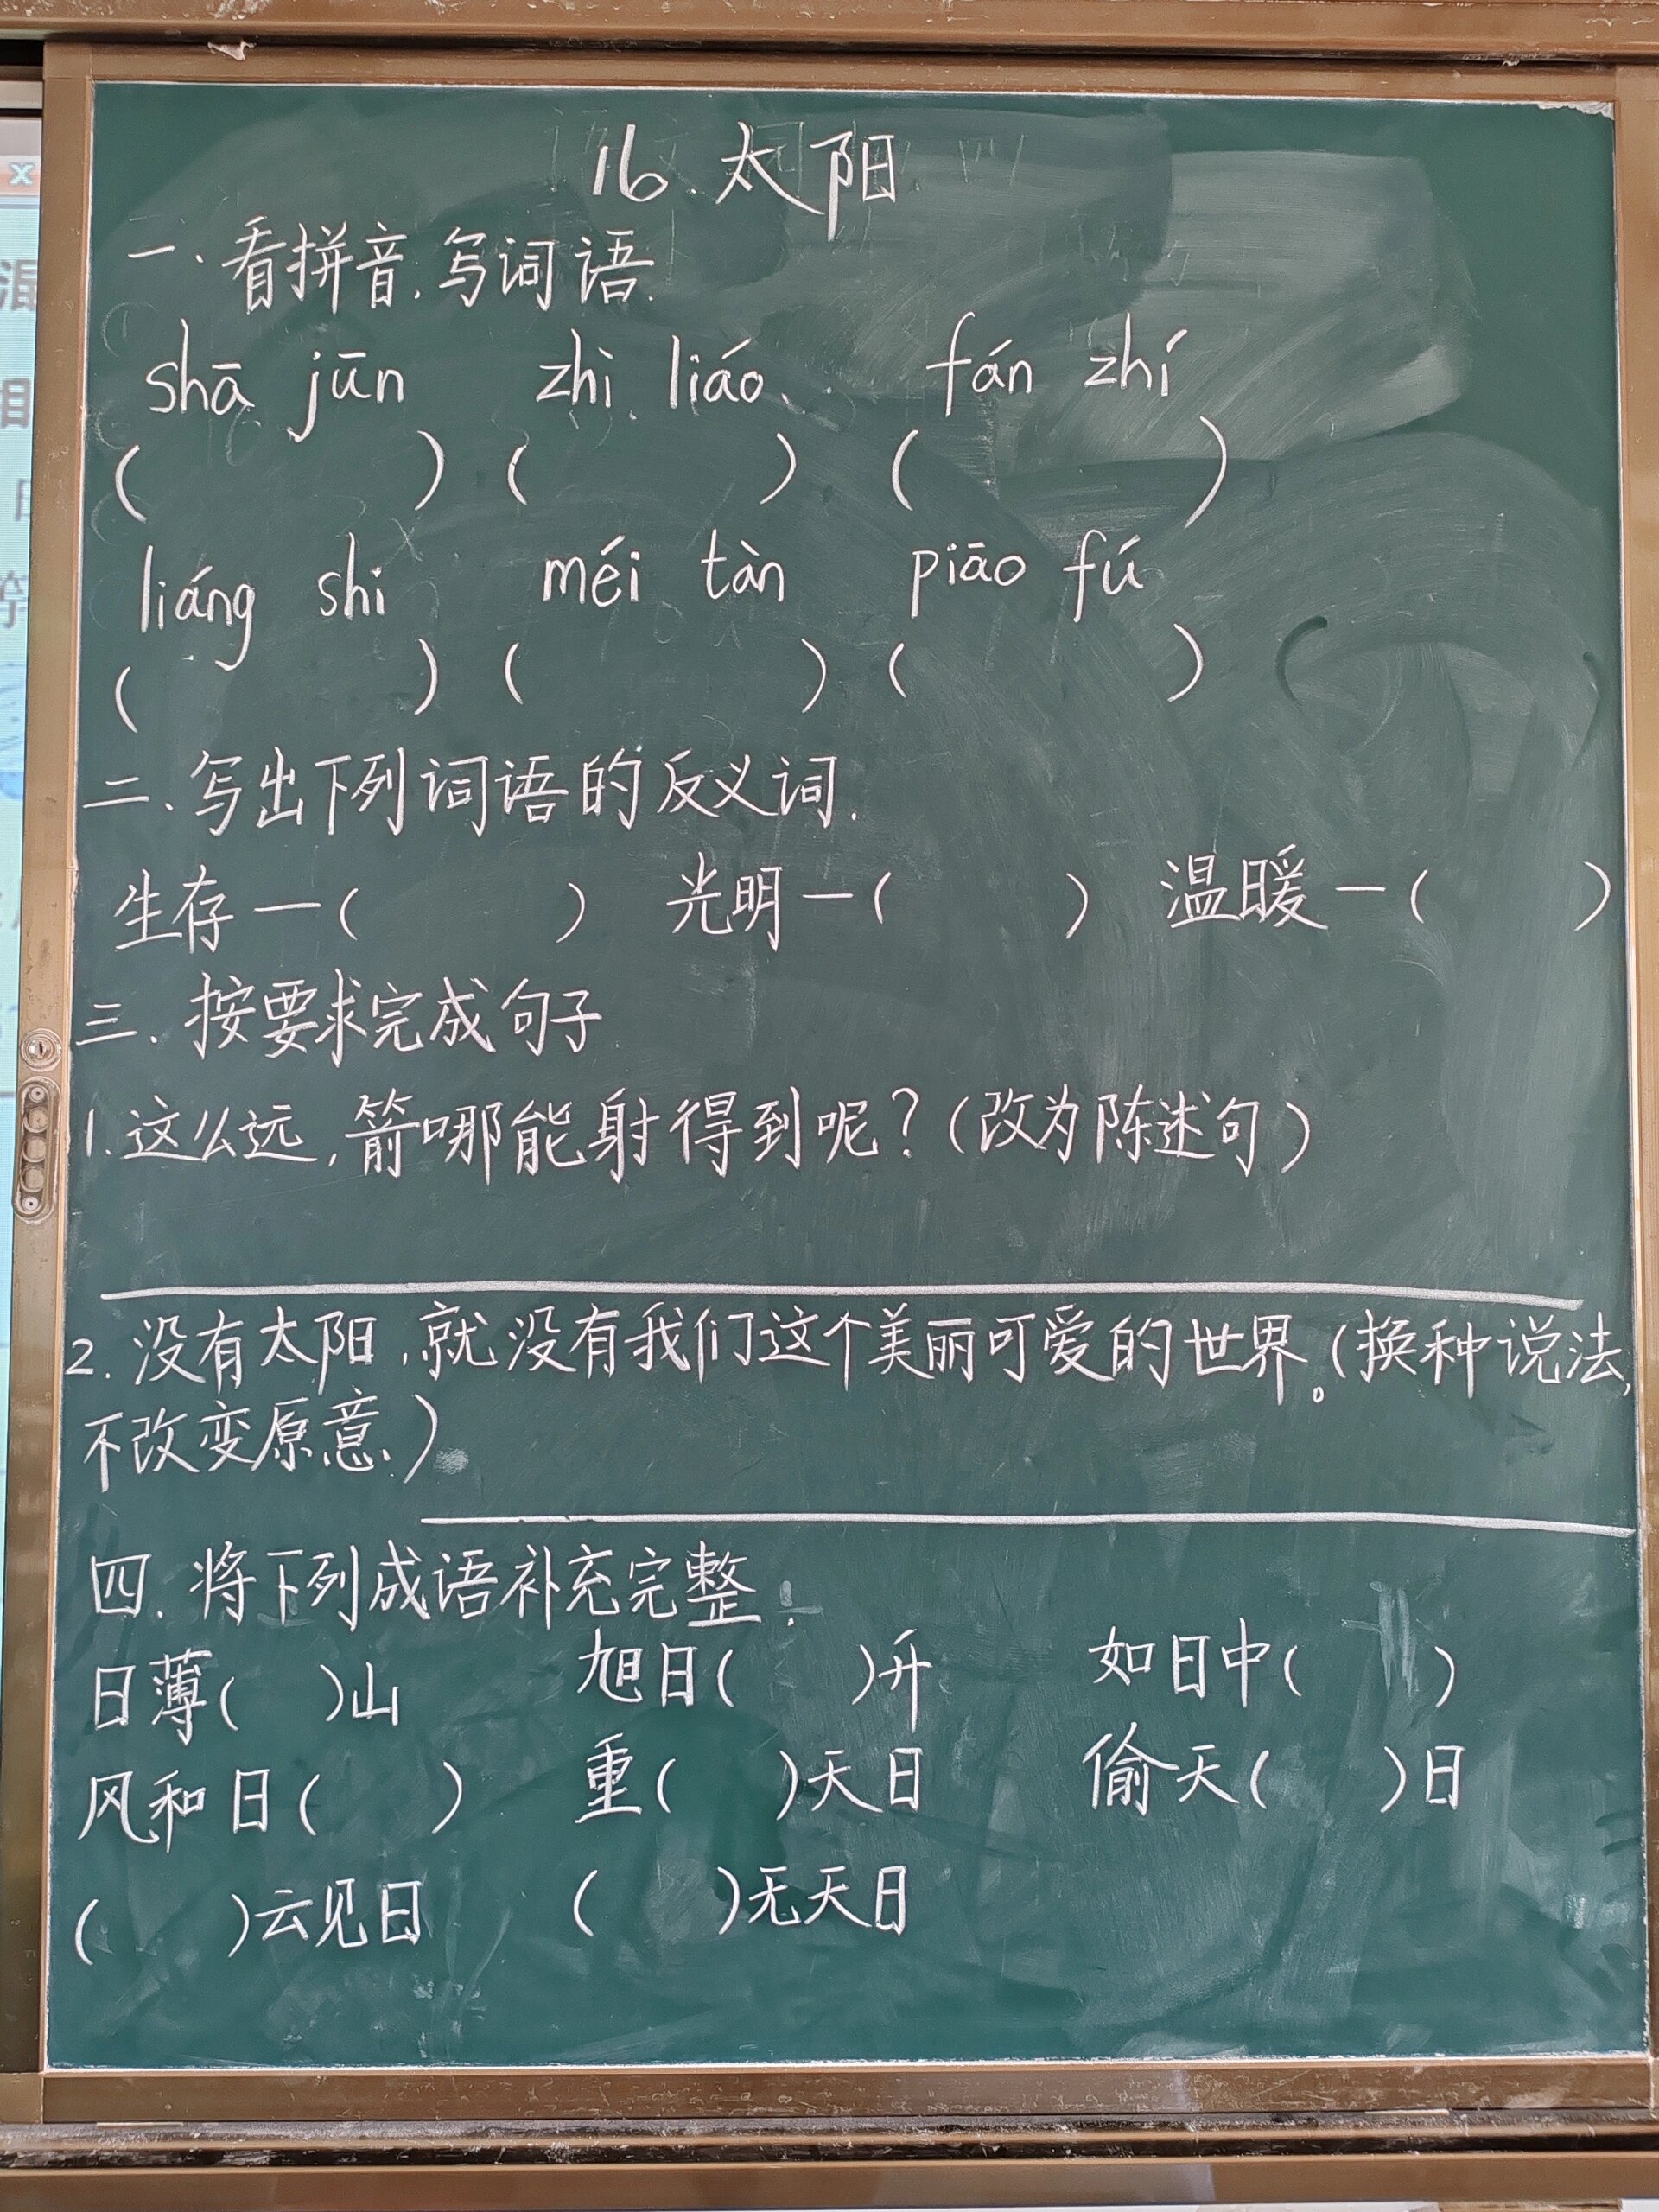 16.太阳
一.看拼音,写词语.
shā jūn zhì liáo fán zhí
( ) ( ) ( )
liáng shi méi tàn piāo fú
( ) ( ) ( )
二.写出下列词语的反义词.
生存—( ) 光明—( ) 温暖—( )
三.按要求完成句子
1.这么远,箭哪能射得到呢?(改为陈述句)
2.没有太阳,就没有我们这个美丽可爱的世界。(换种说法,
不改变原意.)
四.将下列成语补充完整.
日薄( )山 旭日( )升 如日中( )
风和日( ) 重( )天日 偷天( )日
( )云见日 ( )无天日